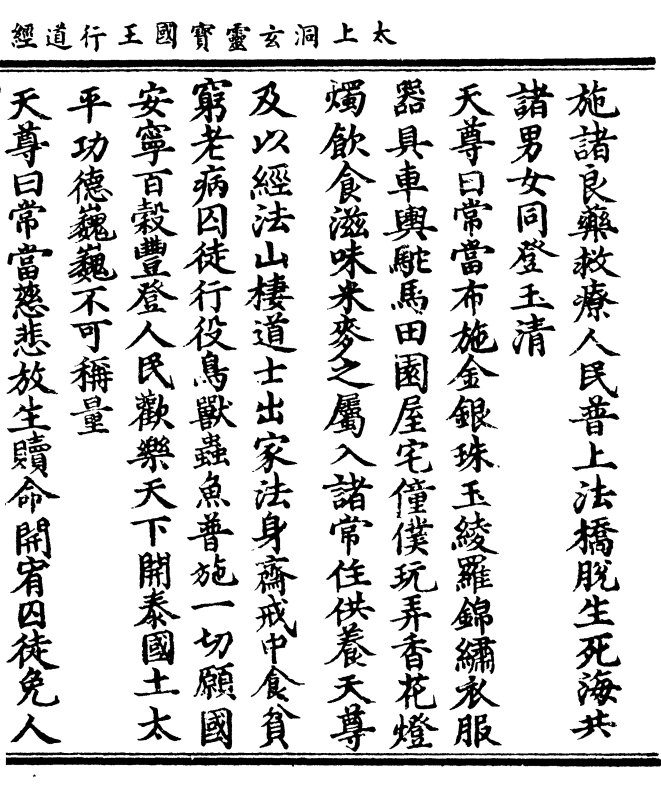 太上洞玄靈寶國王行道經
施諸良藥救療人民普上法橋脫生死海共
諸男女同登玉清
天尊曰常當布施金銀珠玉綾羅錦繡衣服
器具車輿駝馬田園屋宅僮僕玩弄香花燈
燭飲食滋味米麥之屬入諸常住供養天尊
及以經法山棲道士出家法身齋戒中食貧
窮老病囚徒行役鳥獸蟲魚普施一切願國
安寧百穀豐登人民歡樂天下開泰國土太
平功德巍巍不可稱量
天尊曰常當慈悲放生贖命開宥囚徒免人